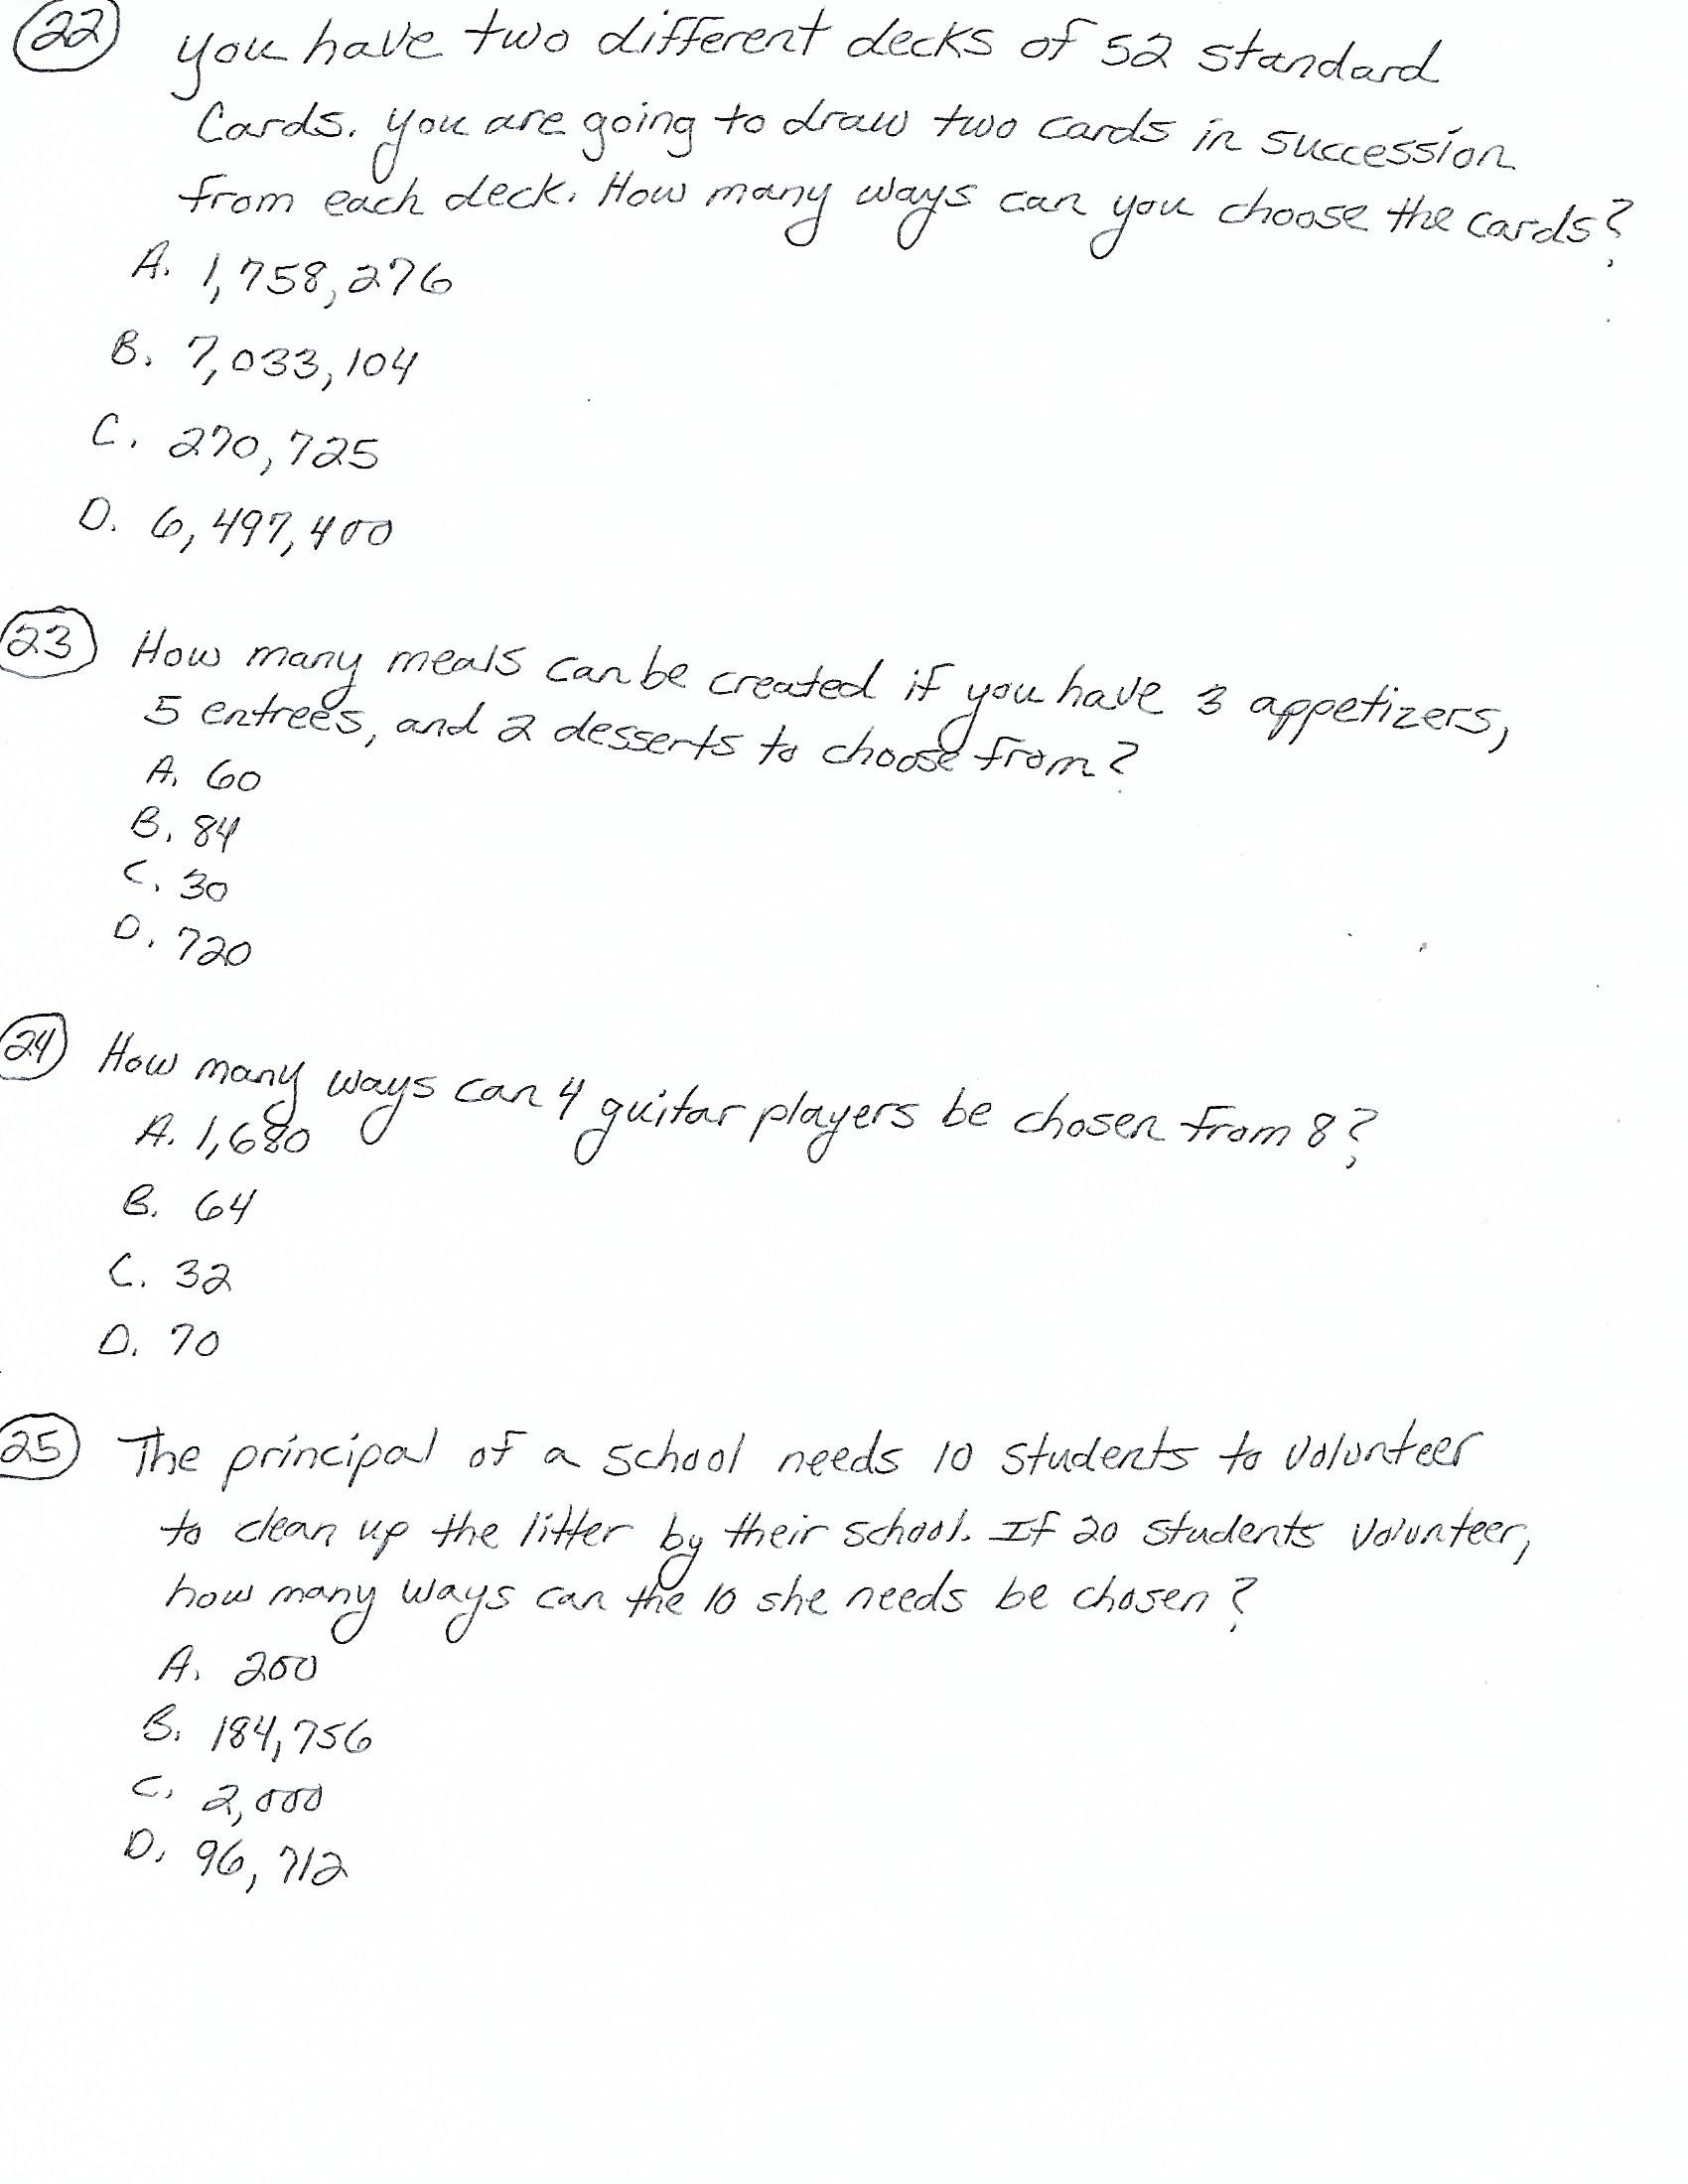 22 you have two different decks of 52 standard
Cards. you are going to draw two cards in succession
from each deck. How many ways can you choose the cards?
A. 1,758,276
B. 7,033,104
C. 270,725
D. 6,497,400
23 How many meals can be created if you have 3 appetizers,
5 entrees, and 2 desserts to choose from?
A. 60
B. 84
C. 30
D. 720
24 How many ways can 4 guitar players be chosen from 8?
A. 1,680
B. 64
C. 32
D. 70
25 The principal of a school needs 10 students to volunteer
to clean up the litter by their school. If 20 students volunteer,
how many ways can the 10 she needs be chosen?
A. 200
B. 184,756
C. 2,000
D. 96,712